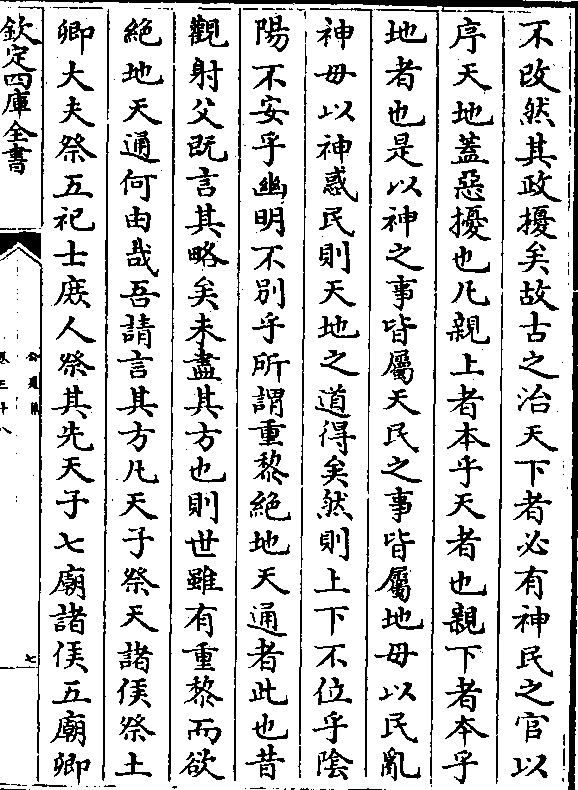 不改然其政擾矣故古之治天下者必有神民之官以
序天地蓋惡擾也凡親上者本乎天者也親下者本乎
地者也是以神之事皆屬天民之事皆屬地毋以民亂
神毋以神惑民則天地之道得矣然則上下不位乎陰
陽不安乎幽明不別乎所謂重黎絶地天通者此也昔
觀射父既言其略矣未盡其方也則世雖有重黎而欲
絶地天通何由哉吾請言其方凡天子祭天諸侯祭土
卿大夫祭五祀士庶人祭其先天子七廟諸侯五廟卿
欽定四庫全書
公是集
卷三十八
七